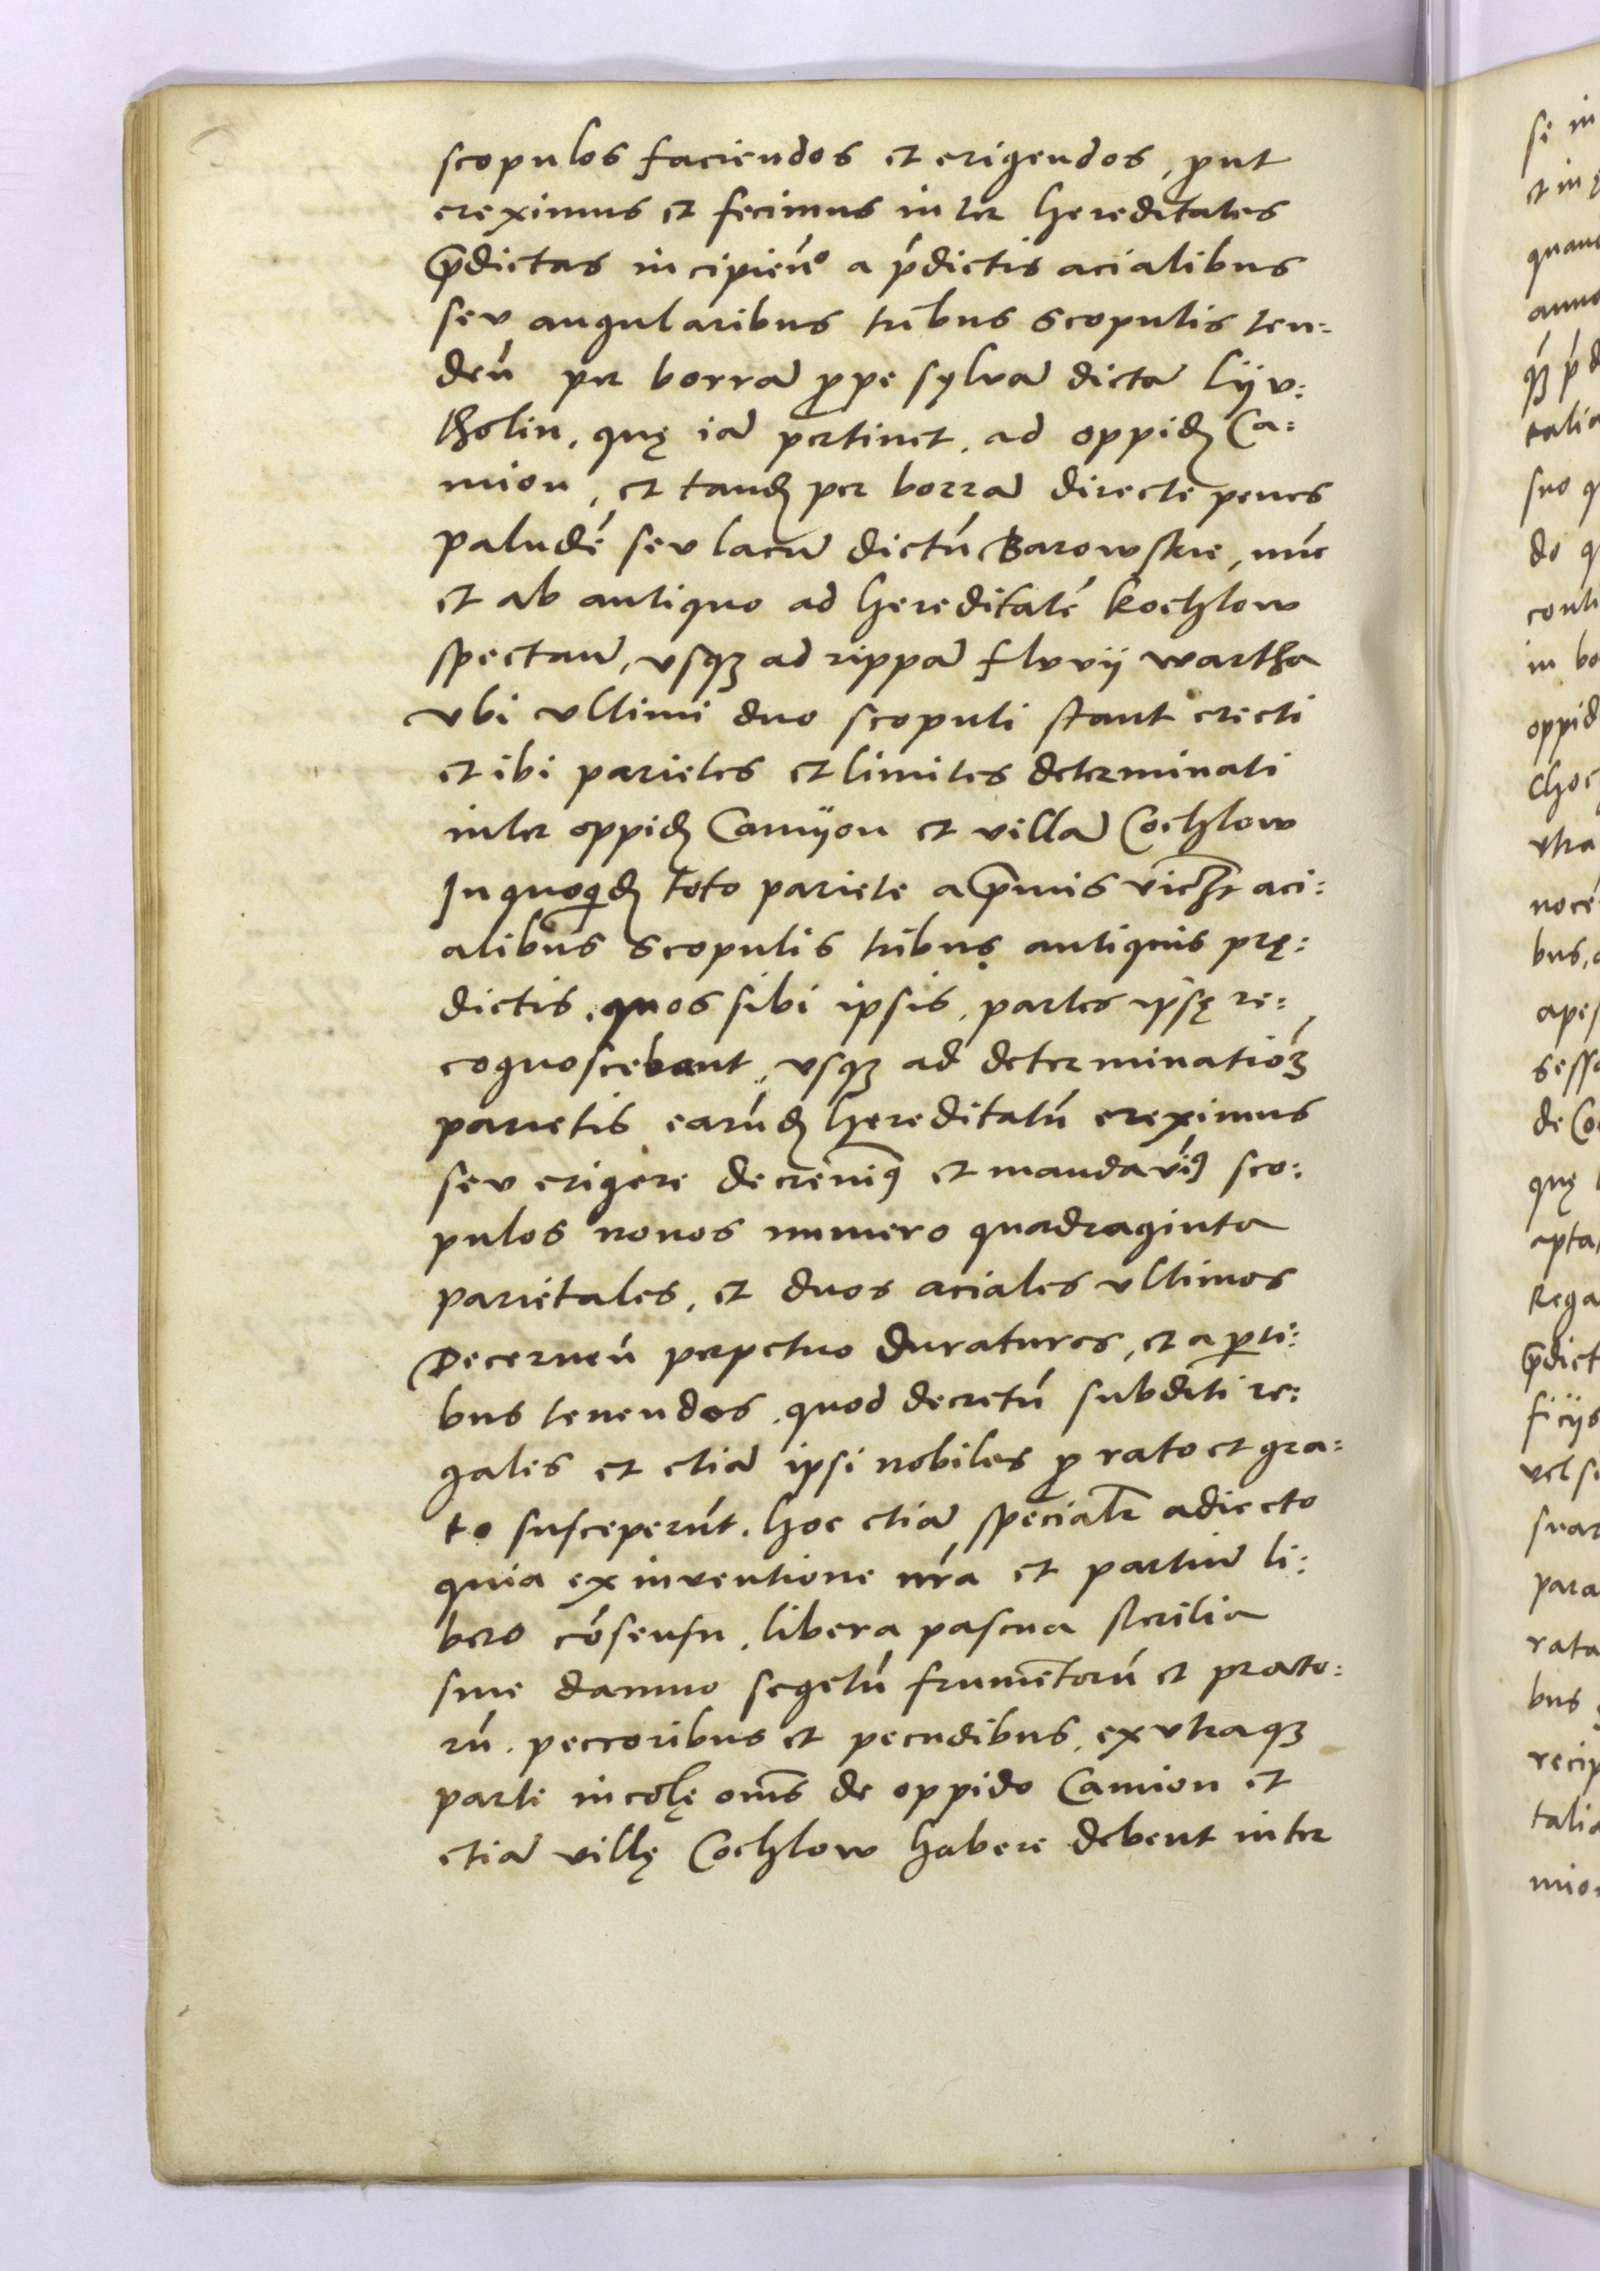 scopulos faciendos et erigendos, ꝓut
ereximus et fecimus inter hereditates
p̄dictas incipień° a ṕdictis acialibus
seu angularibus tribus scopulis ten:
deń per borrā ꝓpe sylvā dictā Lijv:
tholin, quę iā pertinet, ad oppidꝫ Ca:
mion, et tandꝫ per borrā directe penes
paludé seu lacū dictú Barowskie, núc
et ab antiquo ad hereditaté Kochlow
spectań, vsqꝫ ad rippā fluvij wartha
vbi vltimi duo scopuli stant erecti
et ibi parietes et limites determinati
inter oppidꝫ Camijon et villā Cochlow
In quoqdꝫ toto pariete a p̄mis aci:
alibus scopulis tribus antiquis prę:
dictis, quos sibi ipsis, partes ipsę re:
cognoscebant, vsqꝫ ad determinatióꝫ
parietis earúdꝫ hereditatú ereximus
seu erigere decreuimꝰ et mandauímꝰ sco:
pulos novos numero quadraginta
parietales, et duos aciales vltimos
Decerneń perpetuo duraturos, et a ꝑti:
bus tenendos, quod decretú subditi re:
gales et etiā ipsi nobiles ꝓ rato et gra:
to susceperút. hoc etiā specialr̄ adiecto
quia ex inventione nŕa et partiū li:
bero cósensu, libera pascua sterilia
sine damno segetú frumētorú et prato:
rú. peccoribus et pecudibus, ex vtraqꝫ
parte incolę om̄s de oppido Camion et
etiā villę Cochlow habere debent inter